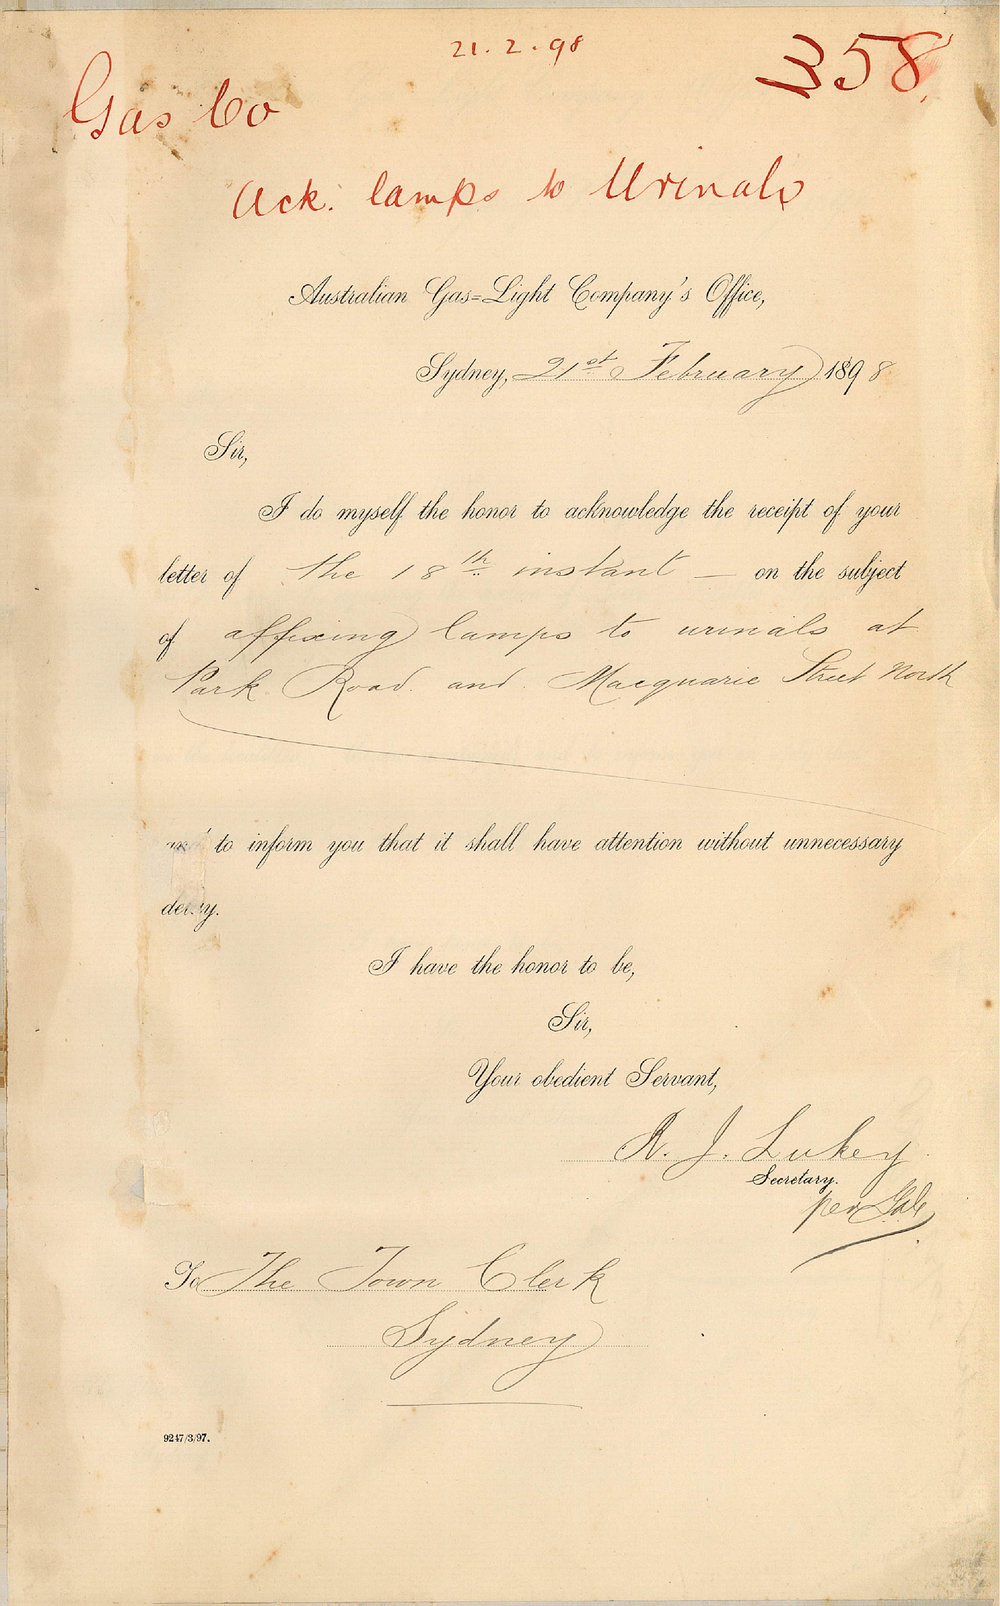 21.2.98
358
Gas Co
Ack. lamps to Urinals
Australian Gas=Light Company's Office,
Sydney, 21st February 1898
Sir,
I do myself the honor to acknowledge the receipt of your
letter of the 18th instant — on the subject
of affixing lamps to urinals at
Park Road. and Macquarie Street North
and to inform you that it shall have attention without unnecessary
delay.
I have the honor to be,
Sir,
Your obedient Servant,
R. J. Lukey
Secretary.
per
To The Town Clerk
Sydney
9247/3/97.